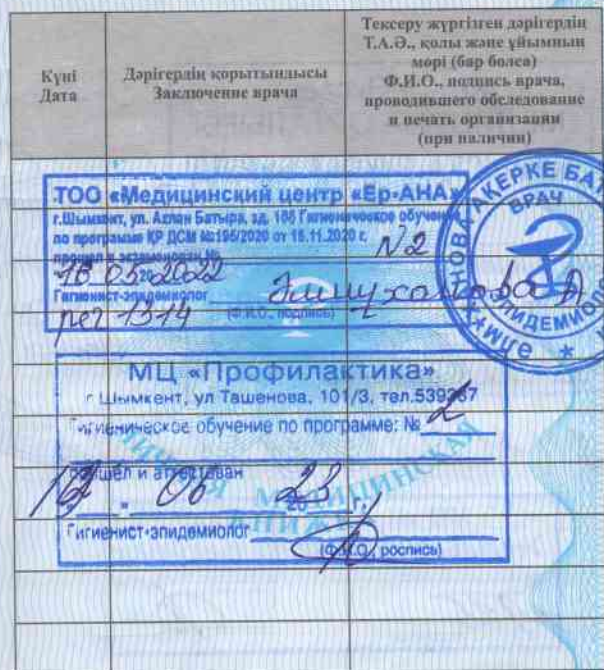 Күні
Дата
Дәрігердің қорытындысы
Заключение врача
Тексеру жүргізген дәрігердің
Т.А.Ә., қолы және ұйымның
мөрі (бар болса)
Ф.И.О., подпись врача,
проводившего обследование
и печать организации
(при наличии)
ТОО «Медицинский центр «Ер-АНА»
г.Шымкент, ул. Аплан Батыра, зд. Гигиеническое обучение
по программе ҚР ДСМ №195/2020 от 16.11.2020 г. №2
прошел и экзаменован
16 05 2022
Гигиенист-эпидемиолог
рег 1314 (Ф.И.О., подпись)
АКЕРКЕ
ВРАЧ
ЭПИДЕМИОЛОГ
МЦ «Профилактика»
г Шымкент, ул Ташенова, 101/3, тел.539367
Гигиеническое обучение по программе: № 2
прошел и аттестован
12 " 06 2023 г.
Гигиенист-эпидемиолог
(Ф.И.О., роспись)
МЕДИЦИНСКАЯ
КНИЖКА